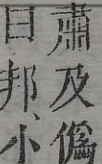 肅及僞
曰邦、小